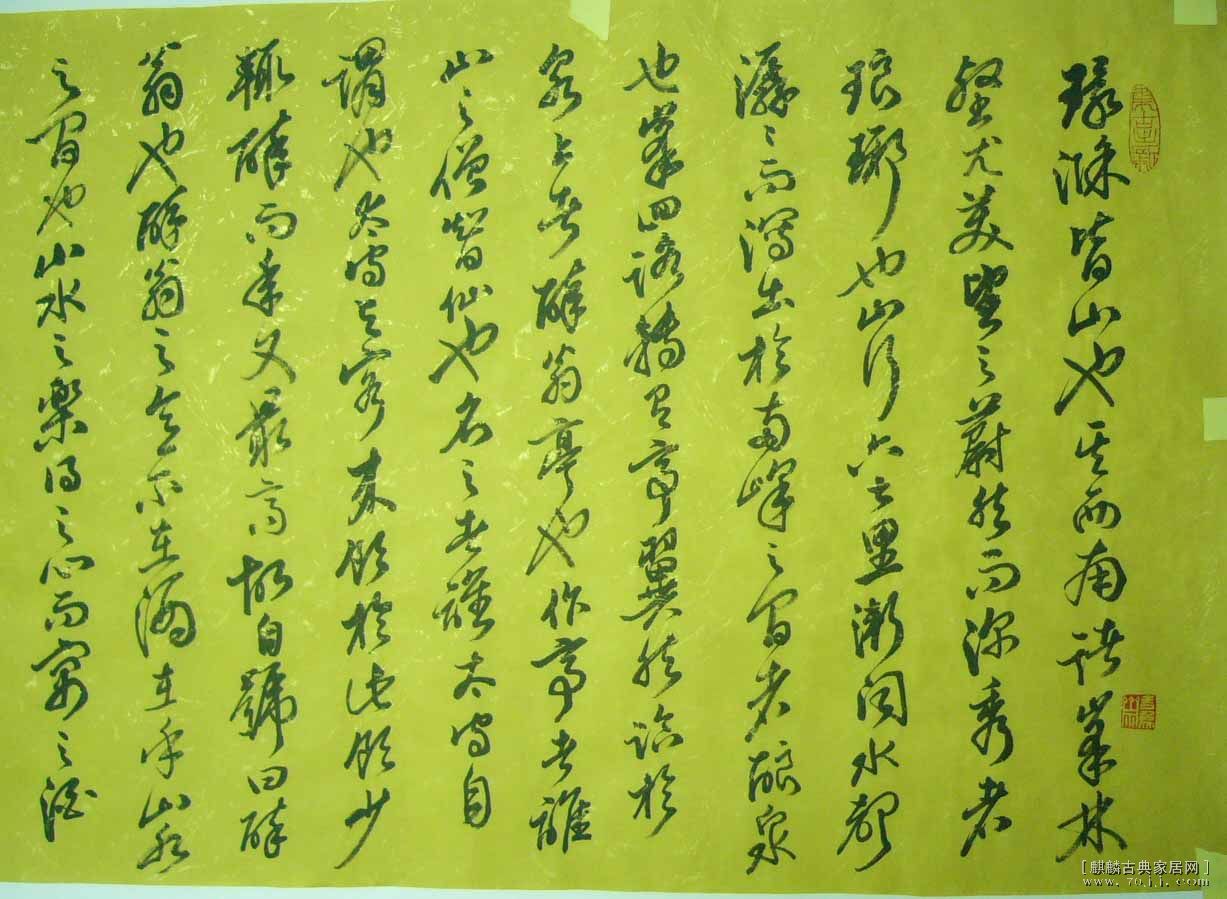 環滁皆山也其西南諸峯林
壑尤美望之蔚然而深秀者
琅琊也山行六七里漸聞水聲
潺潺而瀉出於兩峰之間者釀泉
也峯回路轉有亭翼然臨於
泉上者醉翁亭也作亭者誰
山之僧智仙也名之者誰太守自
謂也太守與客來飲於此飲少
輒醉而年又最高故自號曰醉
翁也醉翁之意不在酒在乎山水
之間也山水之樂得之心而寓之酒
[麒麟古典家居网]
www.70jj.com